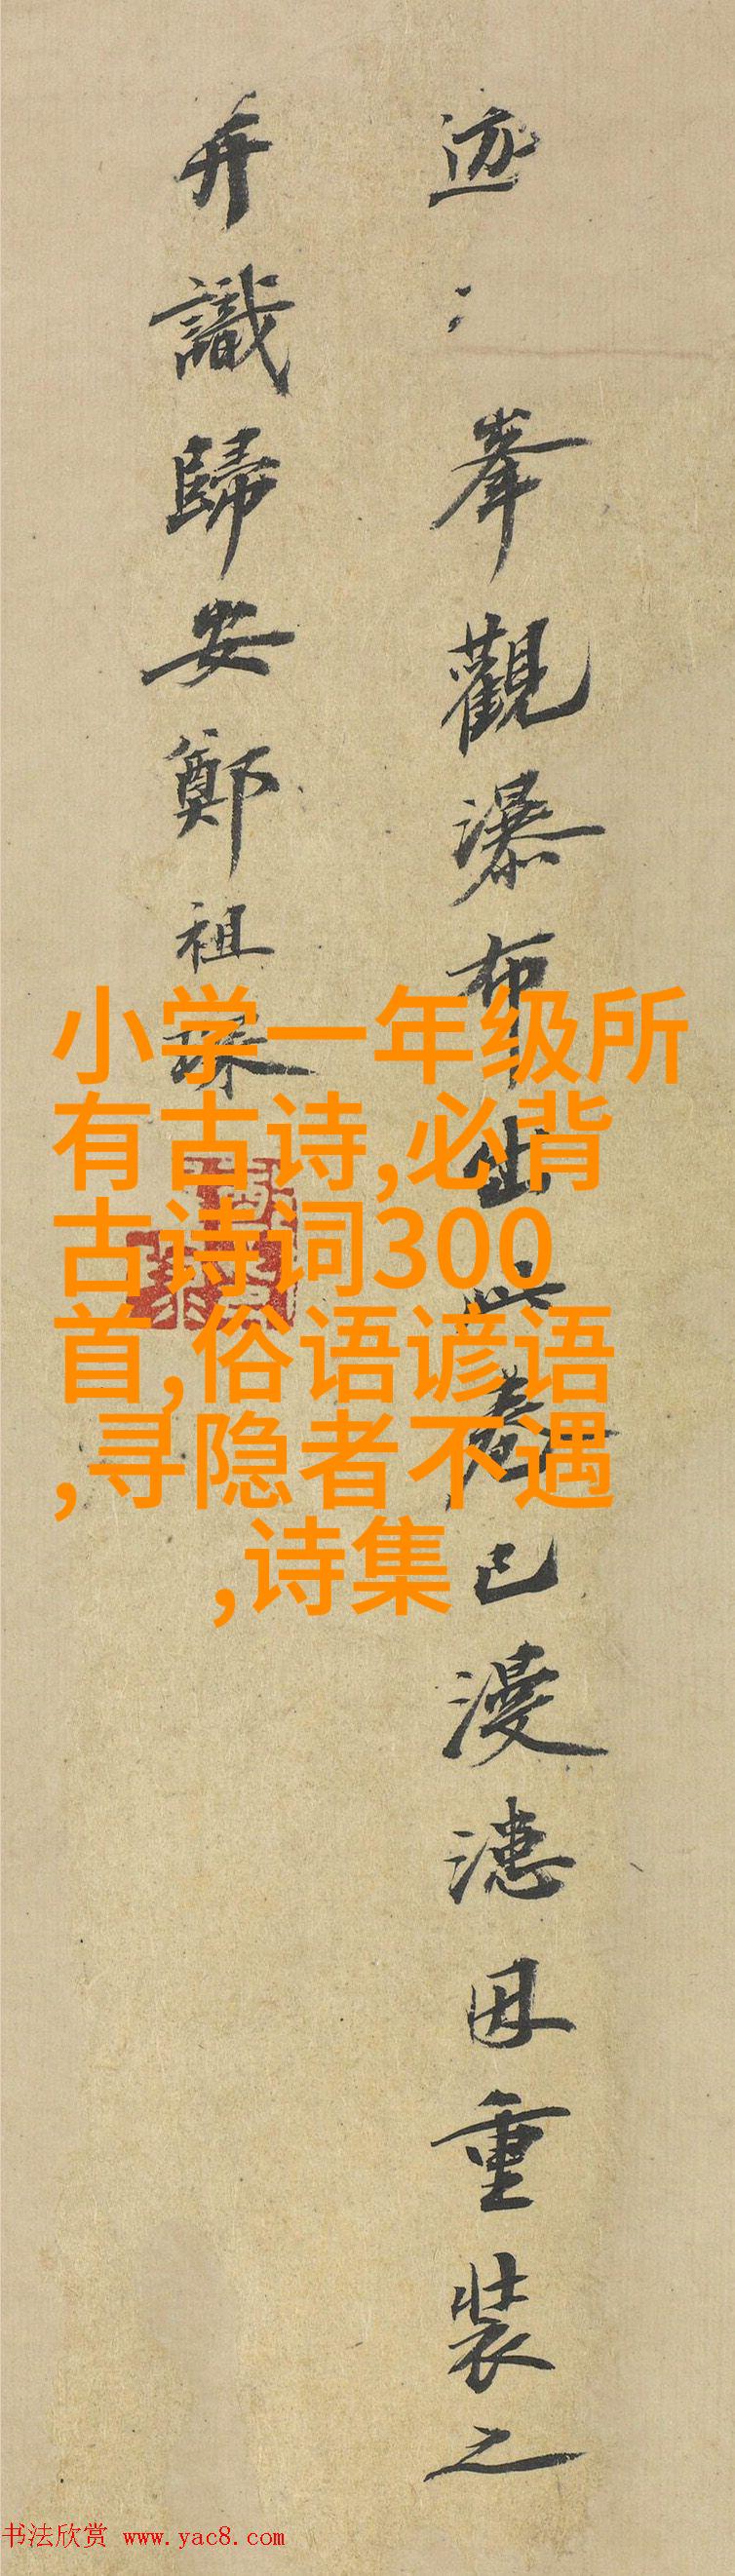 迹、峯觀瀑布出此卷已漫漶因重裝之
并識歸安鄭祖琛
小学一年级所
有古诗,必背
古诗词300
首,俗语谚语
,寻隐者不遇
,诗集
书法欣赏 www.yac8.com